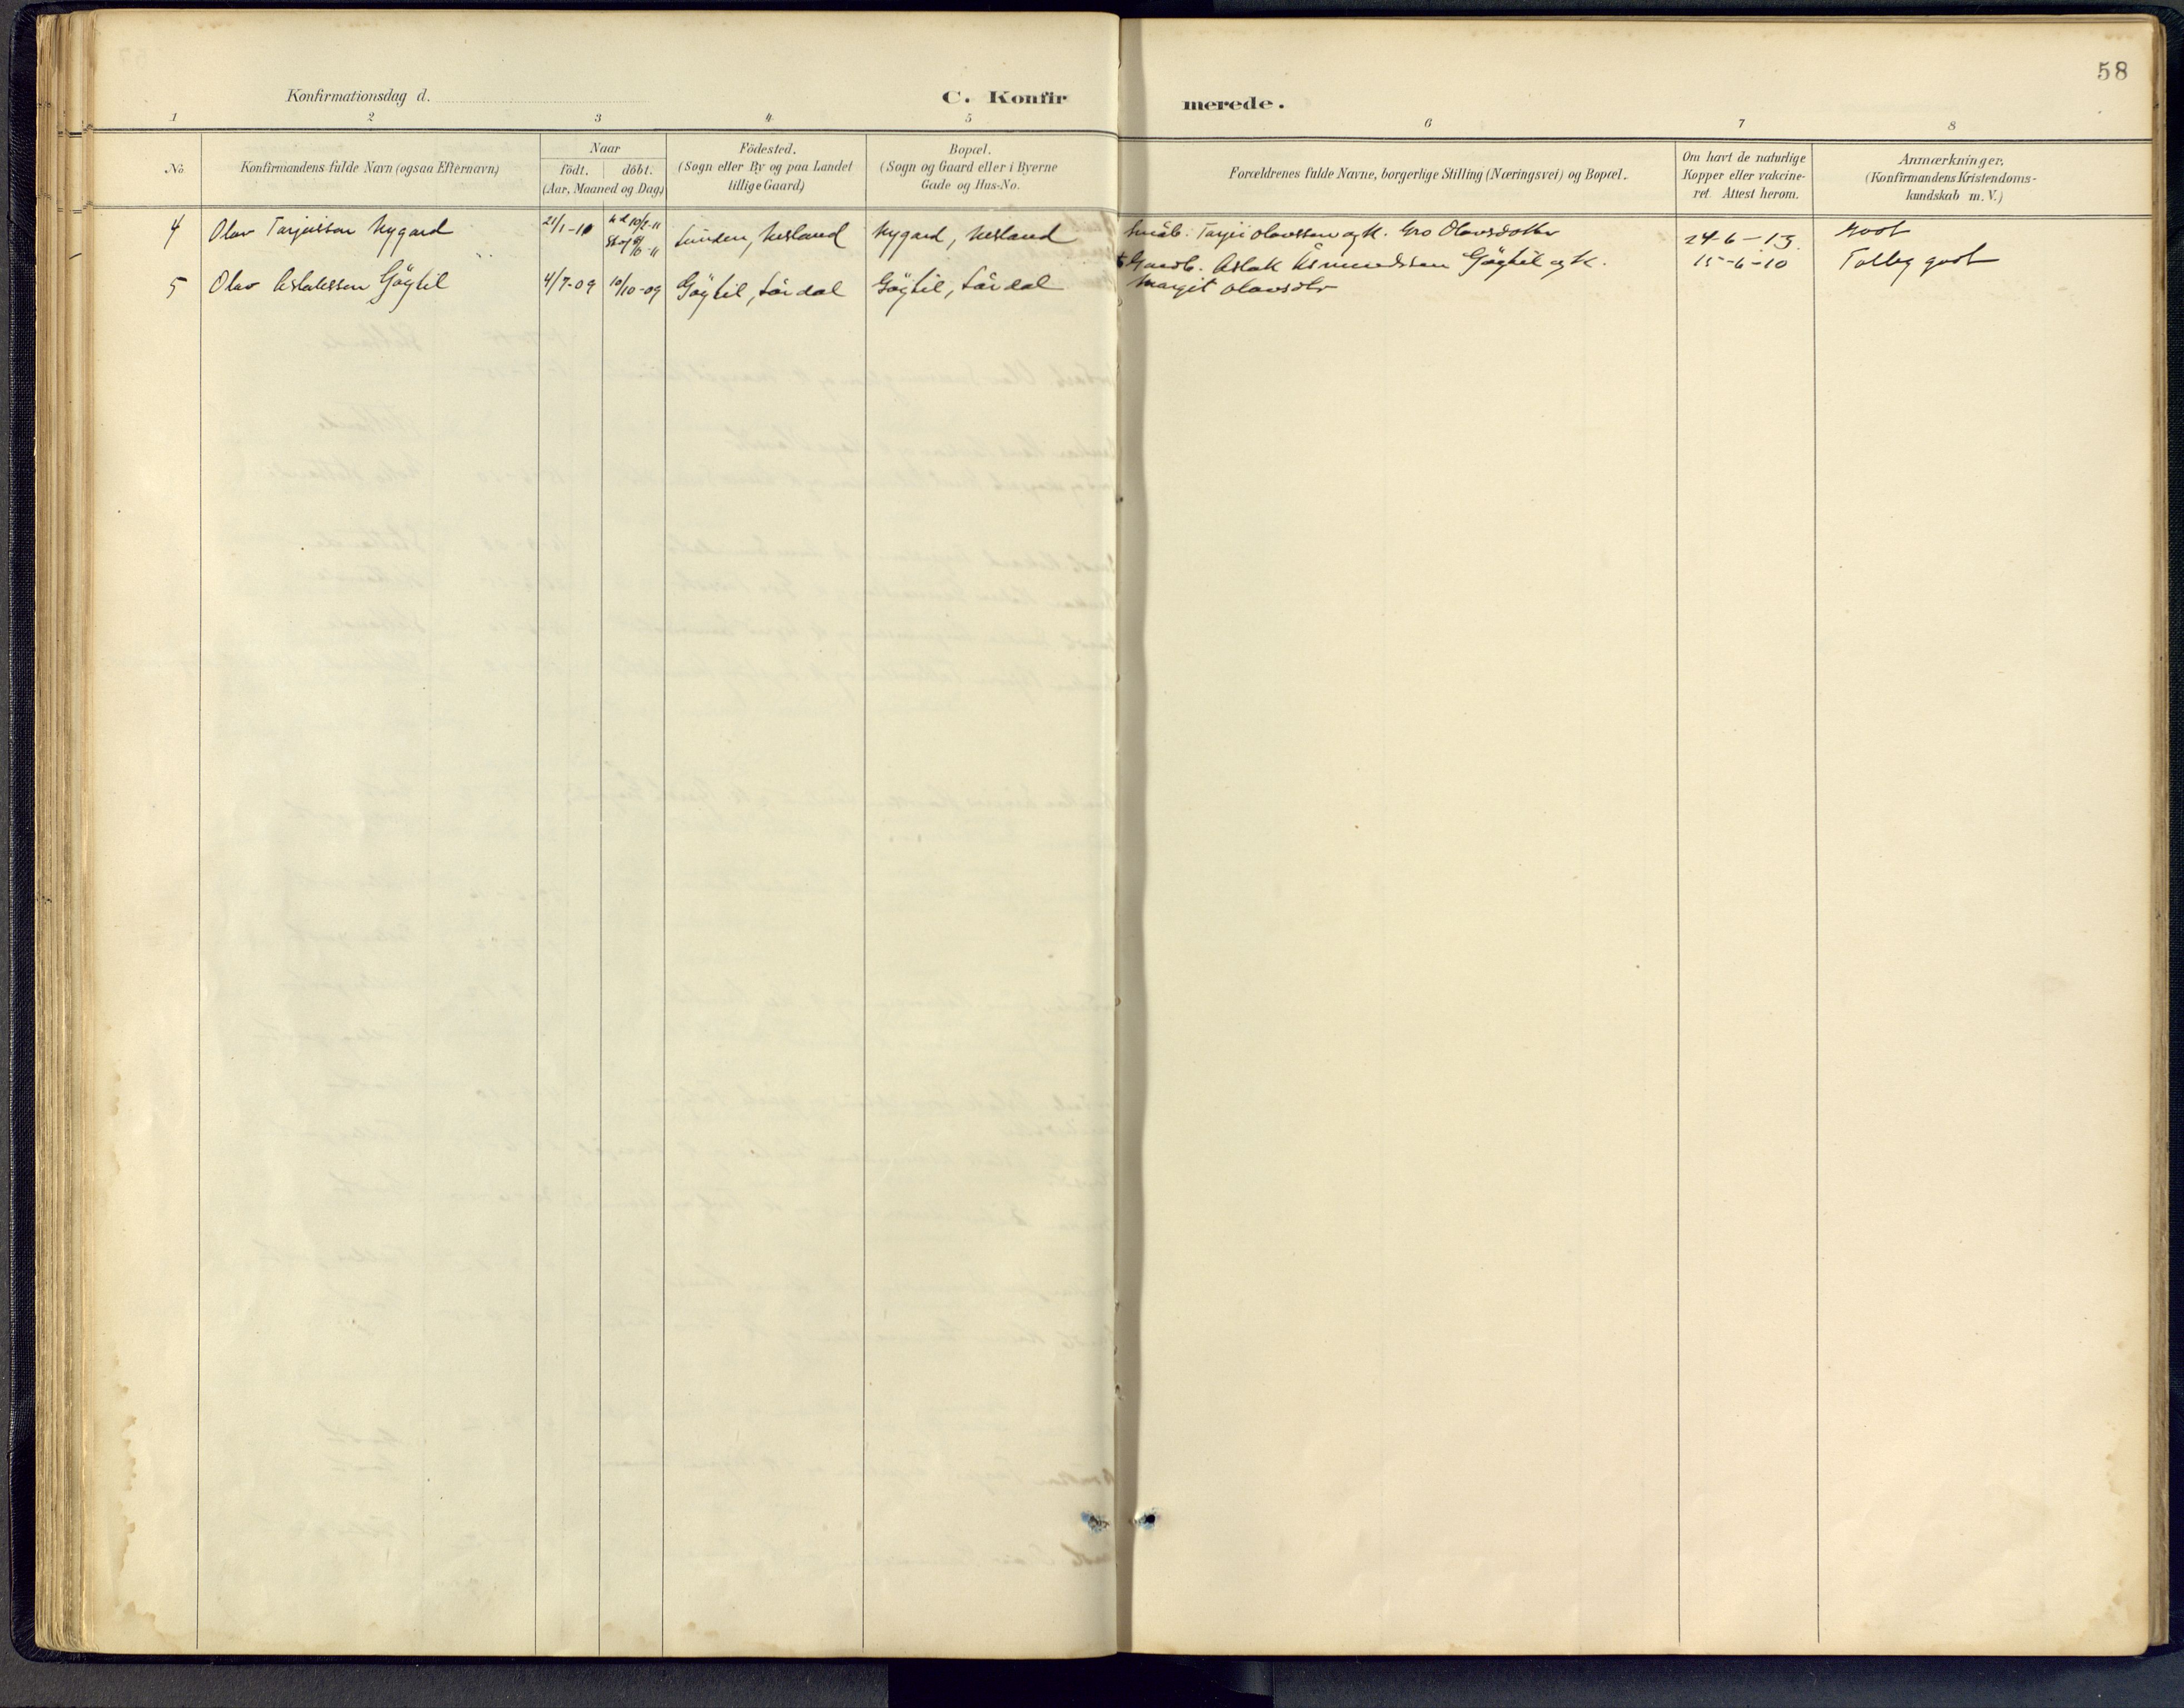 58
Konfirmationsdag d.
C. Konfir merede.
1 2 3 4 5 6 7 8
No.
Konfirmandens fulde Navn (ogsaa Efternavn)
Naar
födt. döbt.
(Aar, Maaned og Dag)
Födested.
(Sogn eller By og paa Landet
tillige Gaard)
Bopæl.
(Sogn og Gaard eller i Byerne
Gade og Hus-No.
Forældrenes fulde Navne, borgerlige Stilling (Næringsvei) og Bopæl.
Om havt de naturlige
Kopper eller vakcine-
ret. Attest herom.
Anmærkninger.
(Konfirmandens Kristendoms-
kundskab m. V.)
4 Olav Tarjeisson Nygard 21/1-10 Linden, Nesland Nygard, Nesland Småb. Tarjei Olavssen og K. Gro Olavsdotter 24-6-13. Godt
5 Olav Aslakssen Göytil 4/7-09 10/10-09 Göytil, Lårdal Göytil, Lårdal Gardb. Aslak Åsmundssen Göytil og K. 15-6-10 Tolleg godt
Margit Olavsdtr